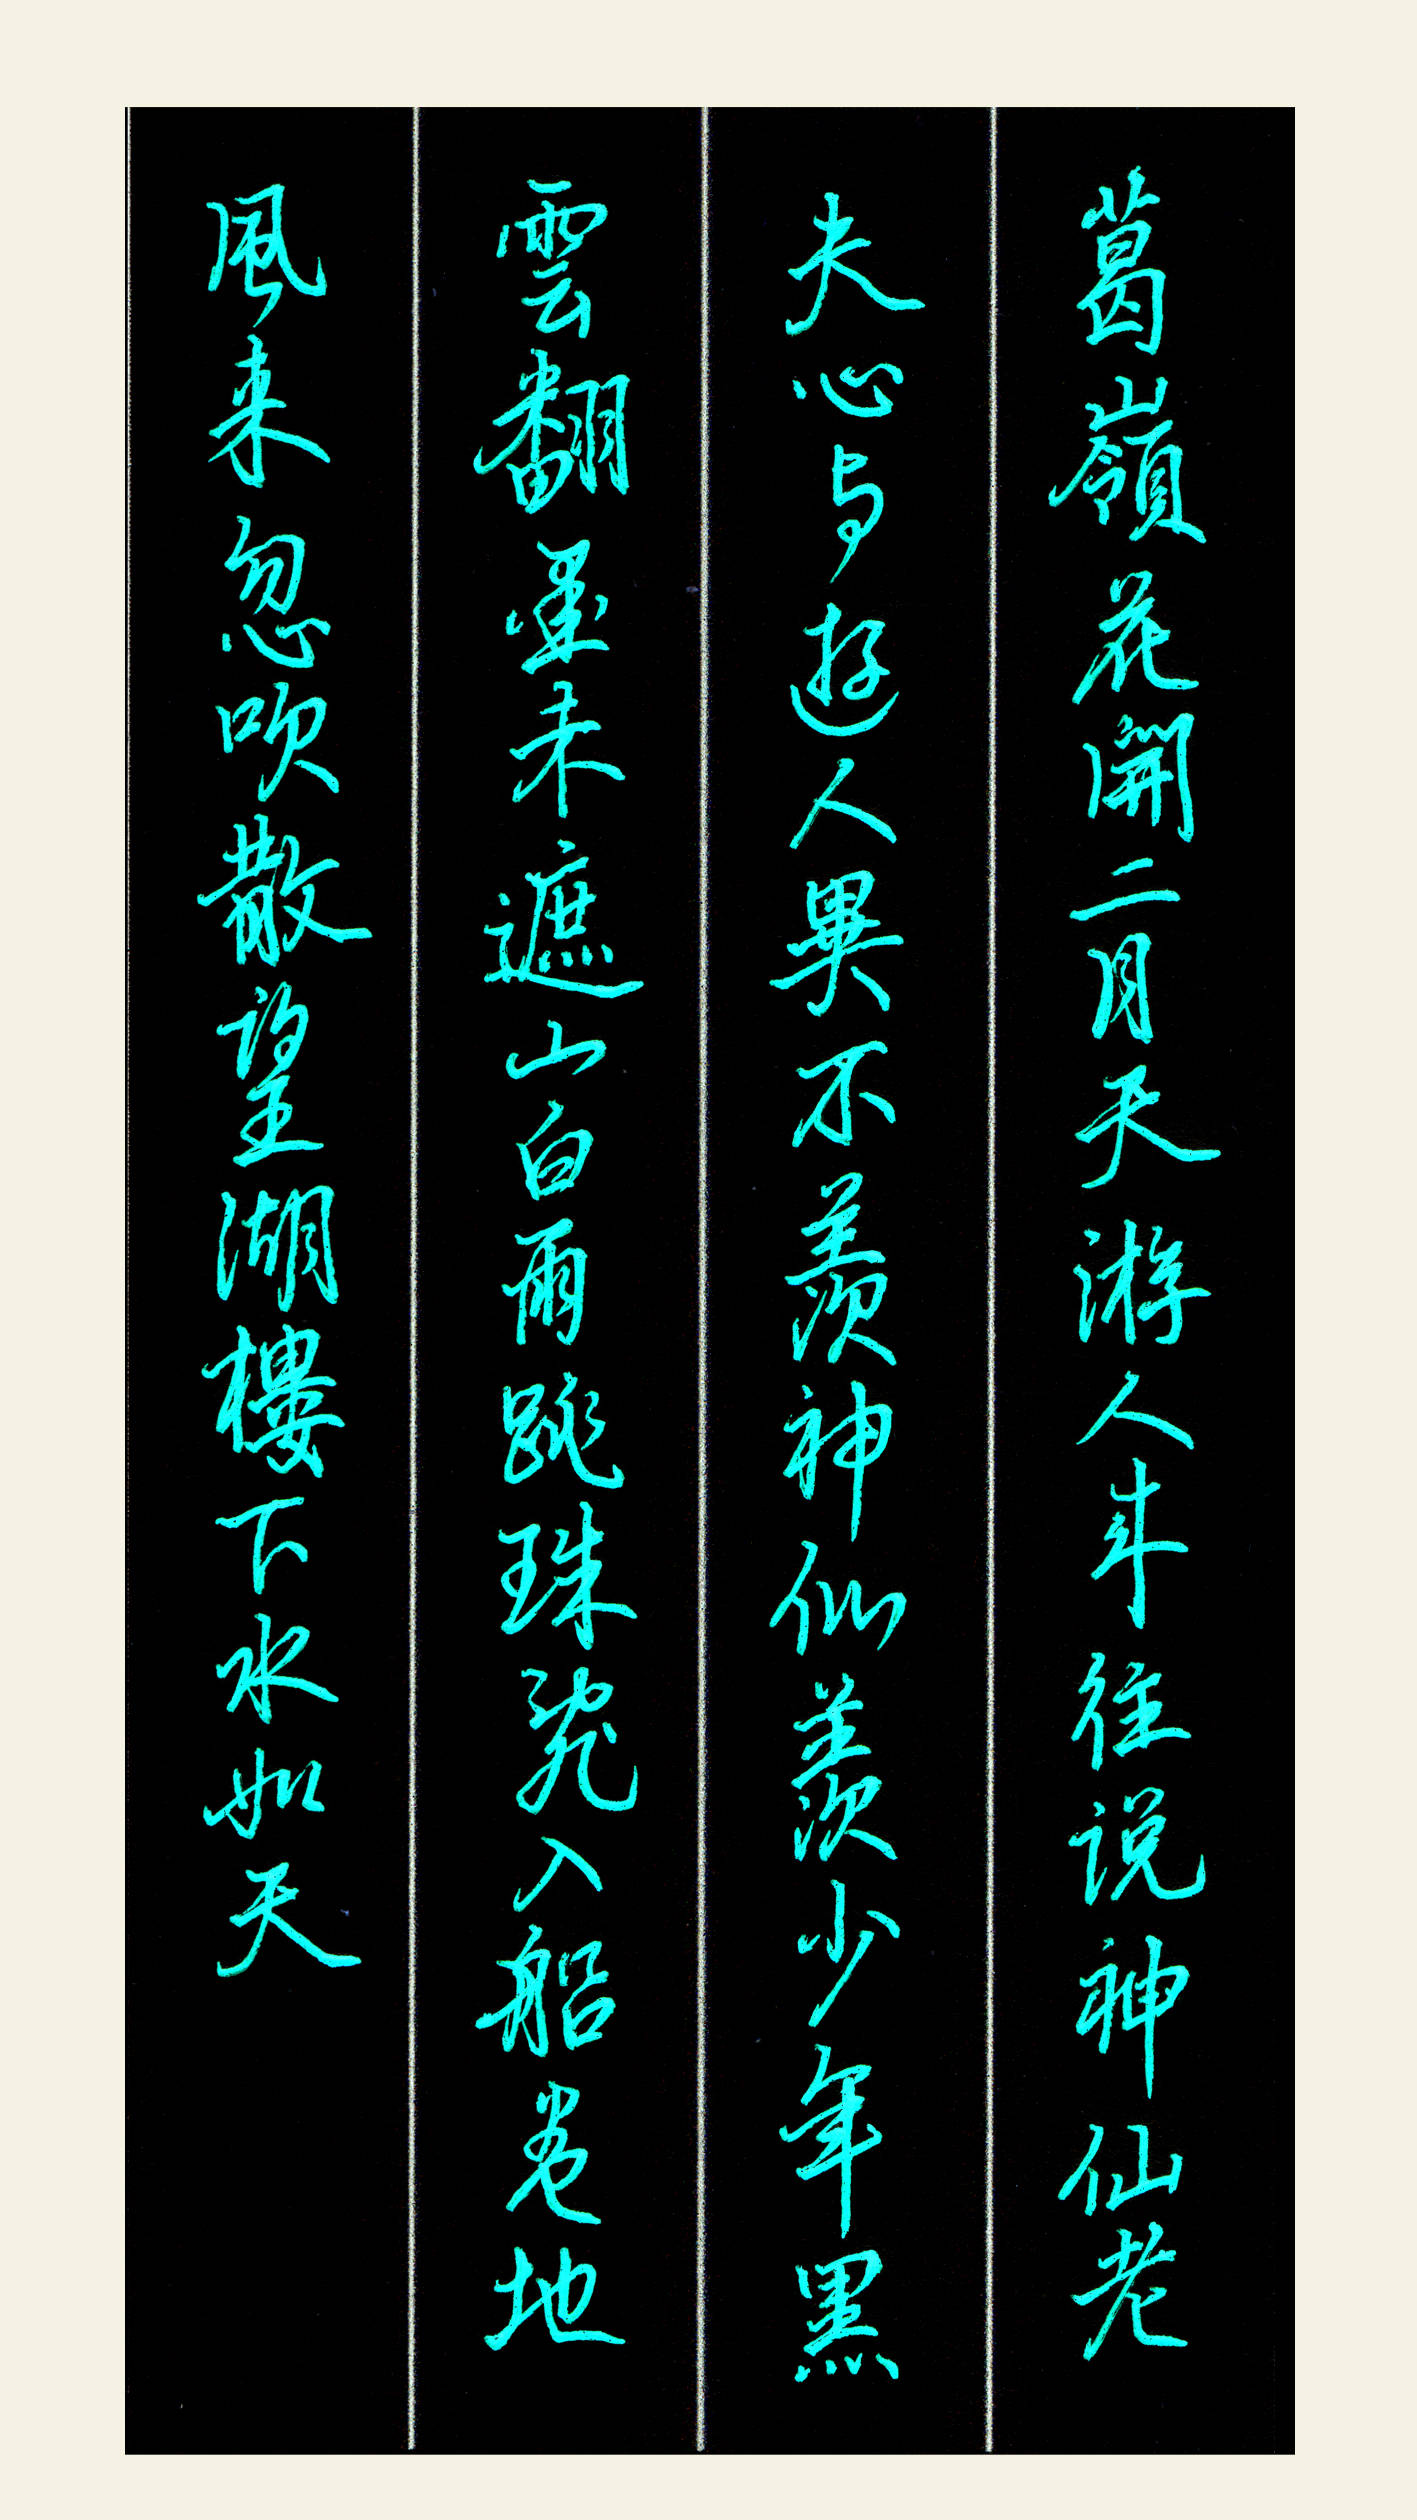 葛嶺花開二月天游人來往说神仙老
夫心与遊人異不羨神仙羨少年黑
雲翻墨未遮山白雨跳珠亂入船卷地
風来忽吹散望湖樓下水如天